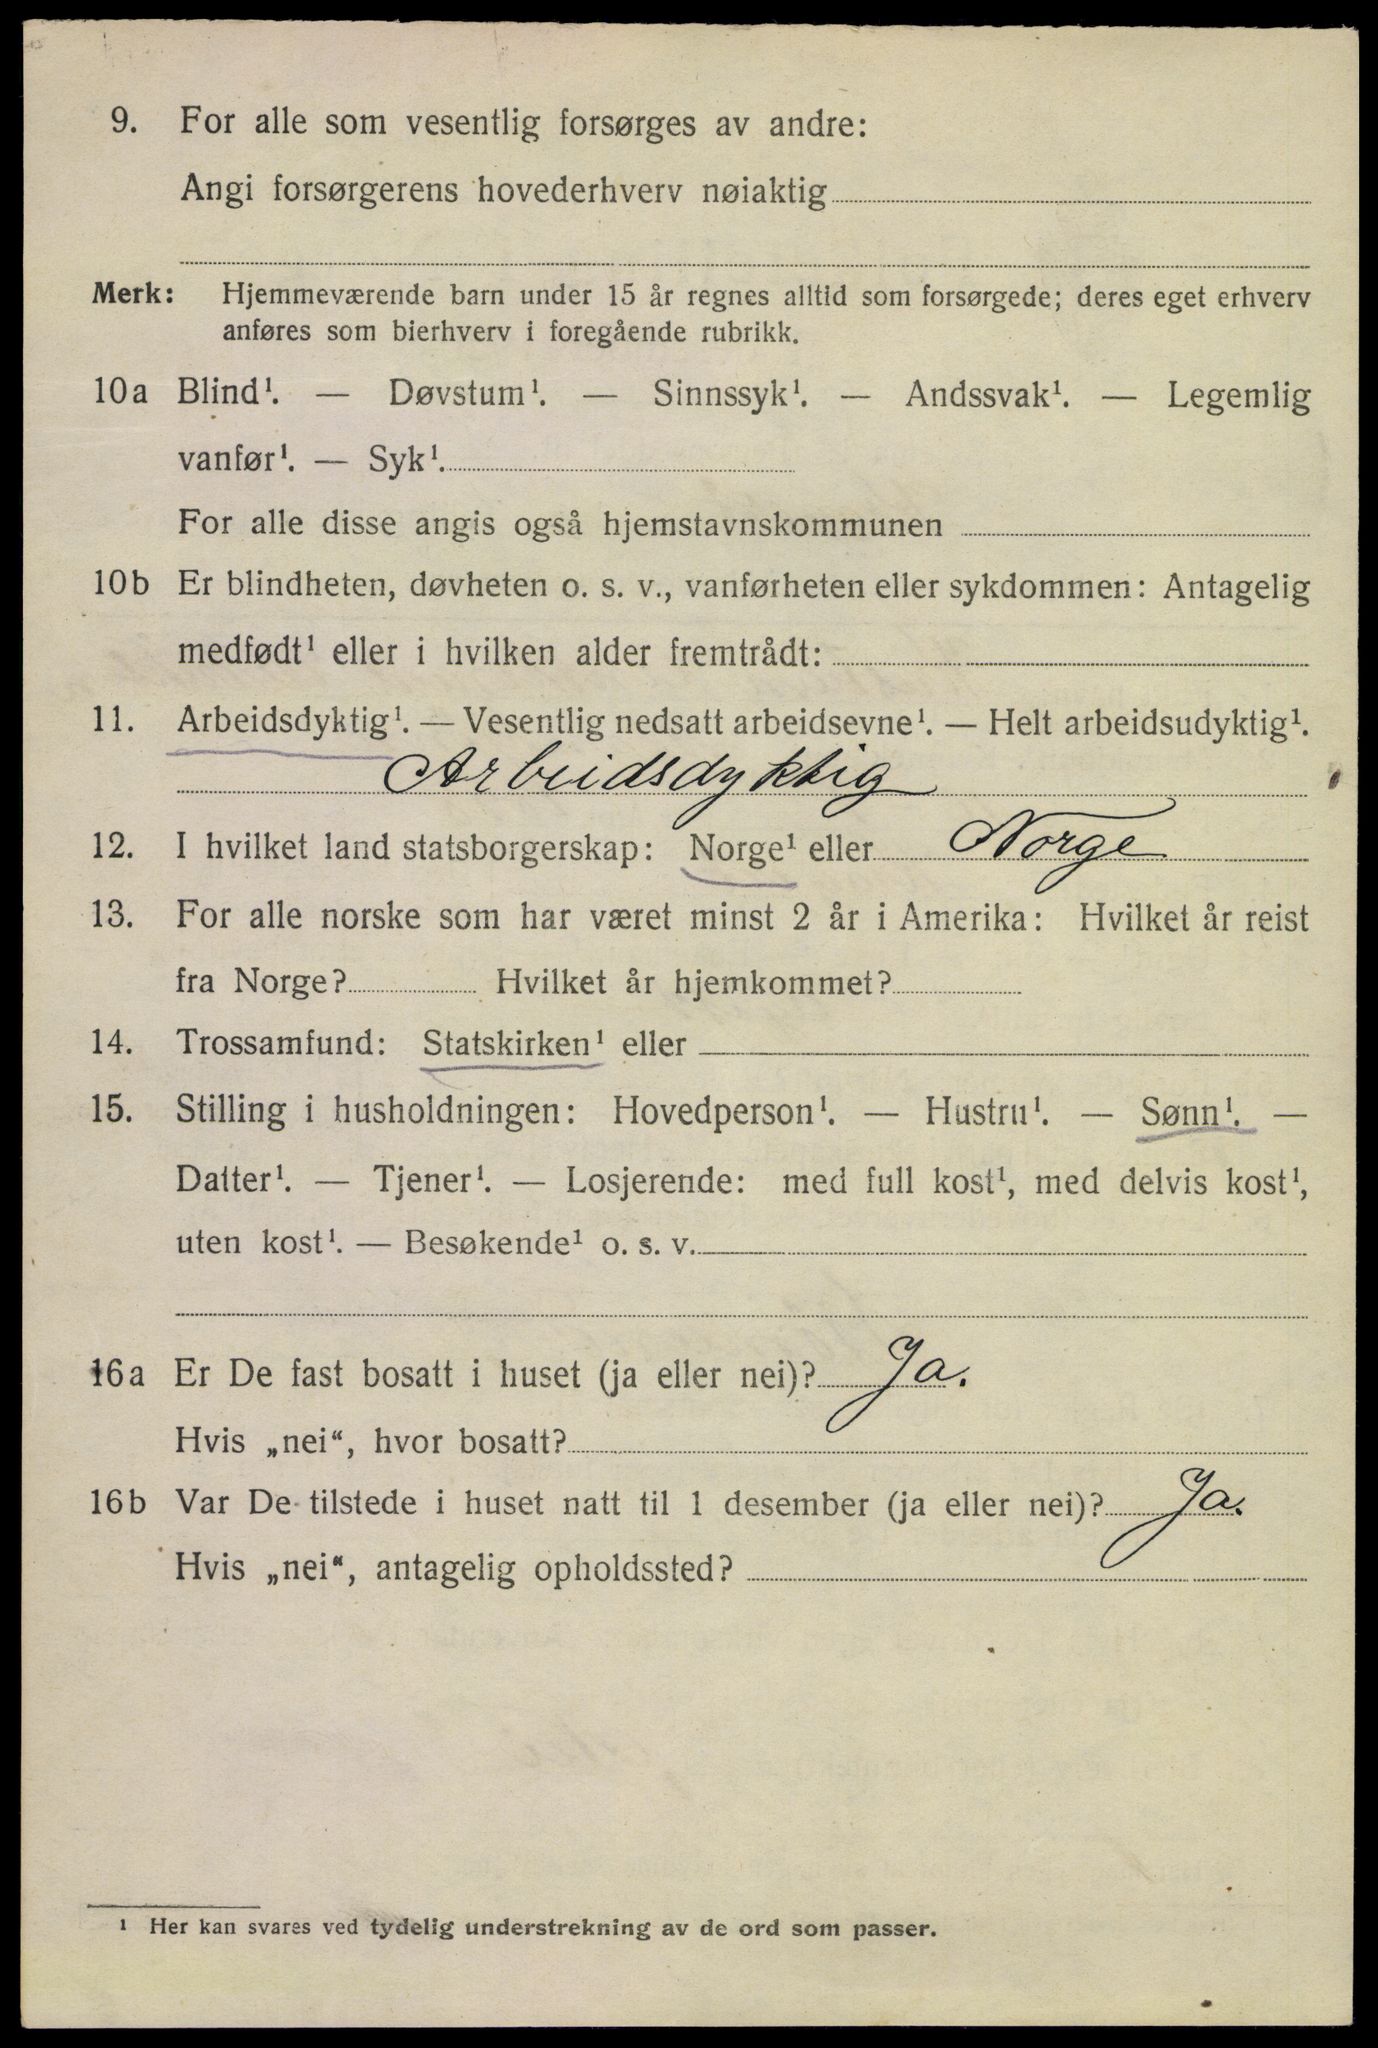 9. For alle som vesentlig forsørges av andre:
Angi forsørgerens hovederhverv nøiaktig
Merk: Hjemmeværende barn under 15 år regnes alltid som forsørgede; deres eget erhverv
anføres som bierhverv i foregående rubrikk.
10a Blind¹. — Døvstum¹. — Sinnssyk¹. — Andssvak¹. — Legemlig
vanfør¹. — Syk¹.
For alle disse angis også hjemstavnskommunen
10b Er blindheten, døvheten o. s. v., vanførheten eller sykdommen: Antagelig
medfødt¹ eller i hvilken alder fremtrådt:
11. Arbeidsdyktig¹. — Vesentlig nedsatt arbeidsevne¹. — Helt arbeidsudyktig¹.
Arbeidsdyktig
12. I hvilket land statsborgerskap: Norge¹ eller Norge
13. For alle norske som har været minst 2 år i Amerika: Hvilket år reist
fra Norge? Hvilket år hjemkommet?
14. Trossamfund: Statskirken¹ eller
15. Stilling i husholdningen: Hovedperson¹. — Hustru¹. — Sønn¹. —
Datter¹. — Tjener¹. — Losjerende: med full kost¹, med delvis kost¹,
uten kost¹. — Besøkende¹ o. s. v.
16a Er De fast bosatt i huset (ja eller nei)? Ja.
Hvis „nei“, hvor bosatt?
16b Var De tilstede i huset natt til 1 desember (ja eller nei)? Ja.
Hvis „nei“, antagelig opholdssted?
¹ Her kan svares ved tydelig understrekning av de ord som passer.